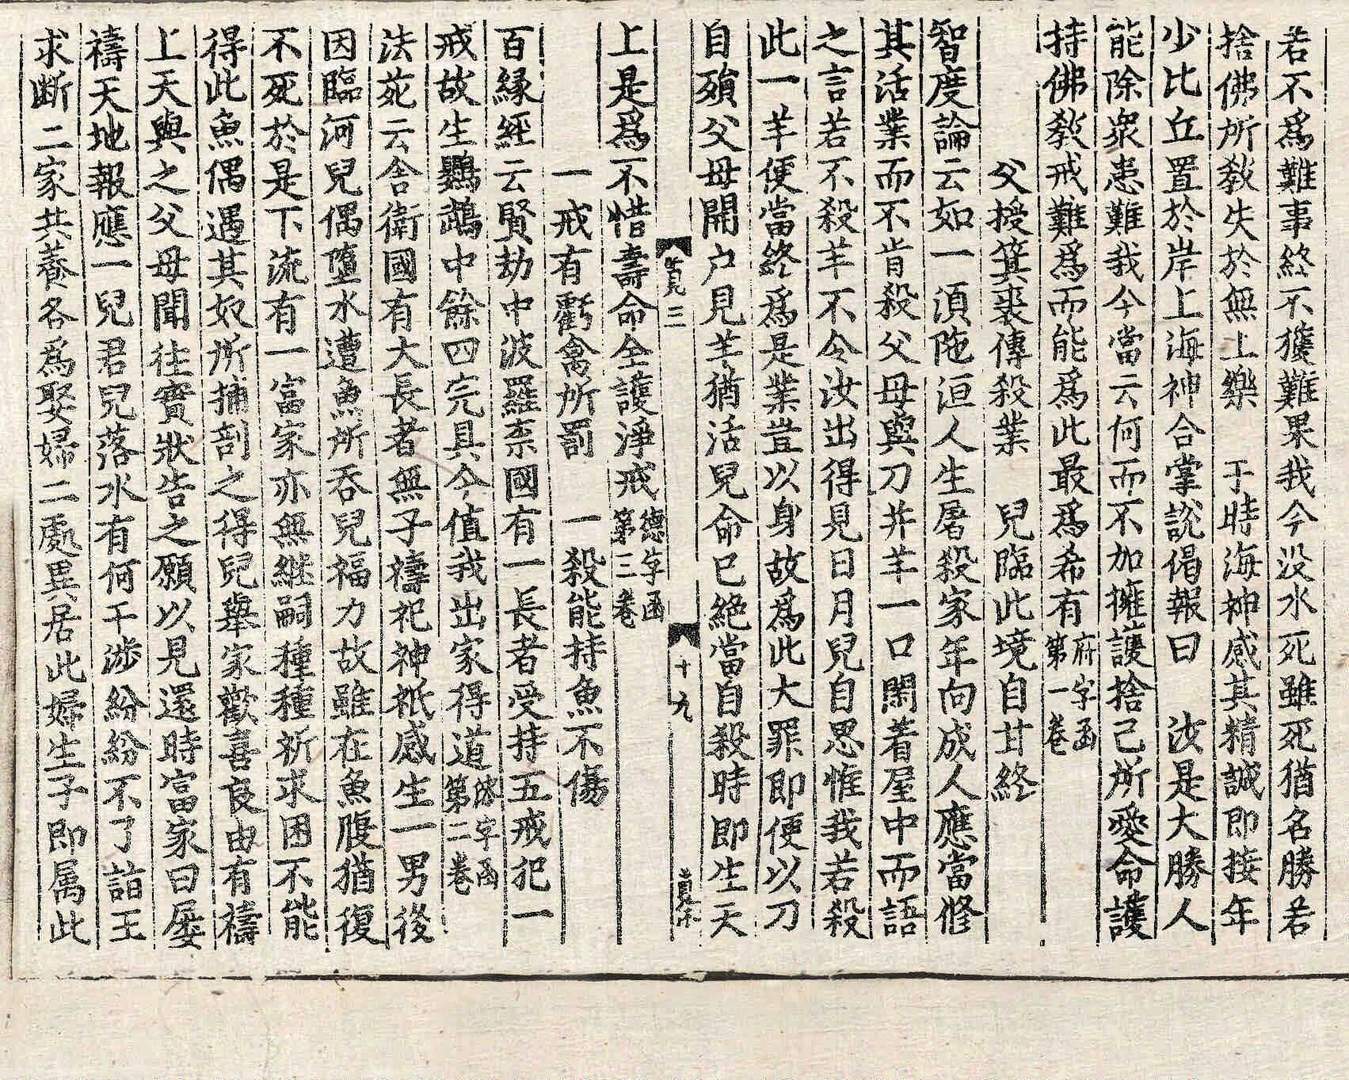 若不爲難事終不獲難果我今没水死雖死猶名勝若
捨佛所敎失於無上樂　于時海神感其精誠即接年
少比丘置於岸上海神合掌說偈報曰　汝是大勝人
能除衆患難我今當云何而不加擁護捨己所愛命護
持佛敎戒難爲而能爲此最爲希有府字函第一卷
父授箕裘傳殺業　兒臨此境自甘終
智度論云如一須陁洹人生屠殺家年向成人應當修
其活業而不肯殺父母與刀并羊一口閉着屋中而語
之言若不殺羊不令汝出得見日月兒自思惟我若殺
此一羊便當終爲是業豈以身故爲此大罪即便以刀
自殞父母開户見羊猶活兒命已絶當自殺時即生天
三　十九
上是爲不惜壽命全護淨戒德字函第三卷
一戒有虧禽所罰　一殺能持魚不傷
百緣經云賢劫中波羅柰國有一長者受持五戒犯一
戒故生鸚鵡中餘四完具今值我出家得道字函第二卷
法苑云舍衛國有大長者無子禱祀神祇感生一男後
因臨河兒偶墮水遭魚所吞兒福力故雖在魚腹猶復
不死於是下流有一富家亦無継嗣種種祈求困不能
得此魚偶遇其奴所捕剖之得兒舉家歡喜良由有禱
上天與之父母聞往實狀告之願以見還時富家曰屡
禱天地報應一兒君兒落水有何干涉紛紛不了詣王
求斷二家共養各爲娶婦二處異居此婦生子即属此